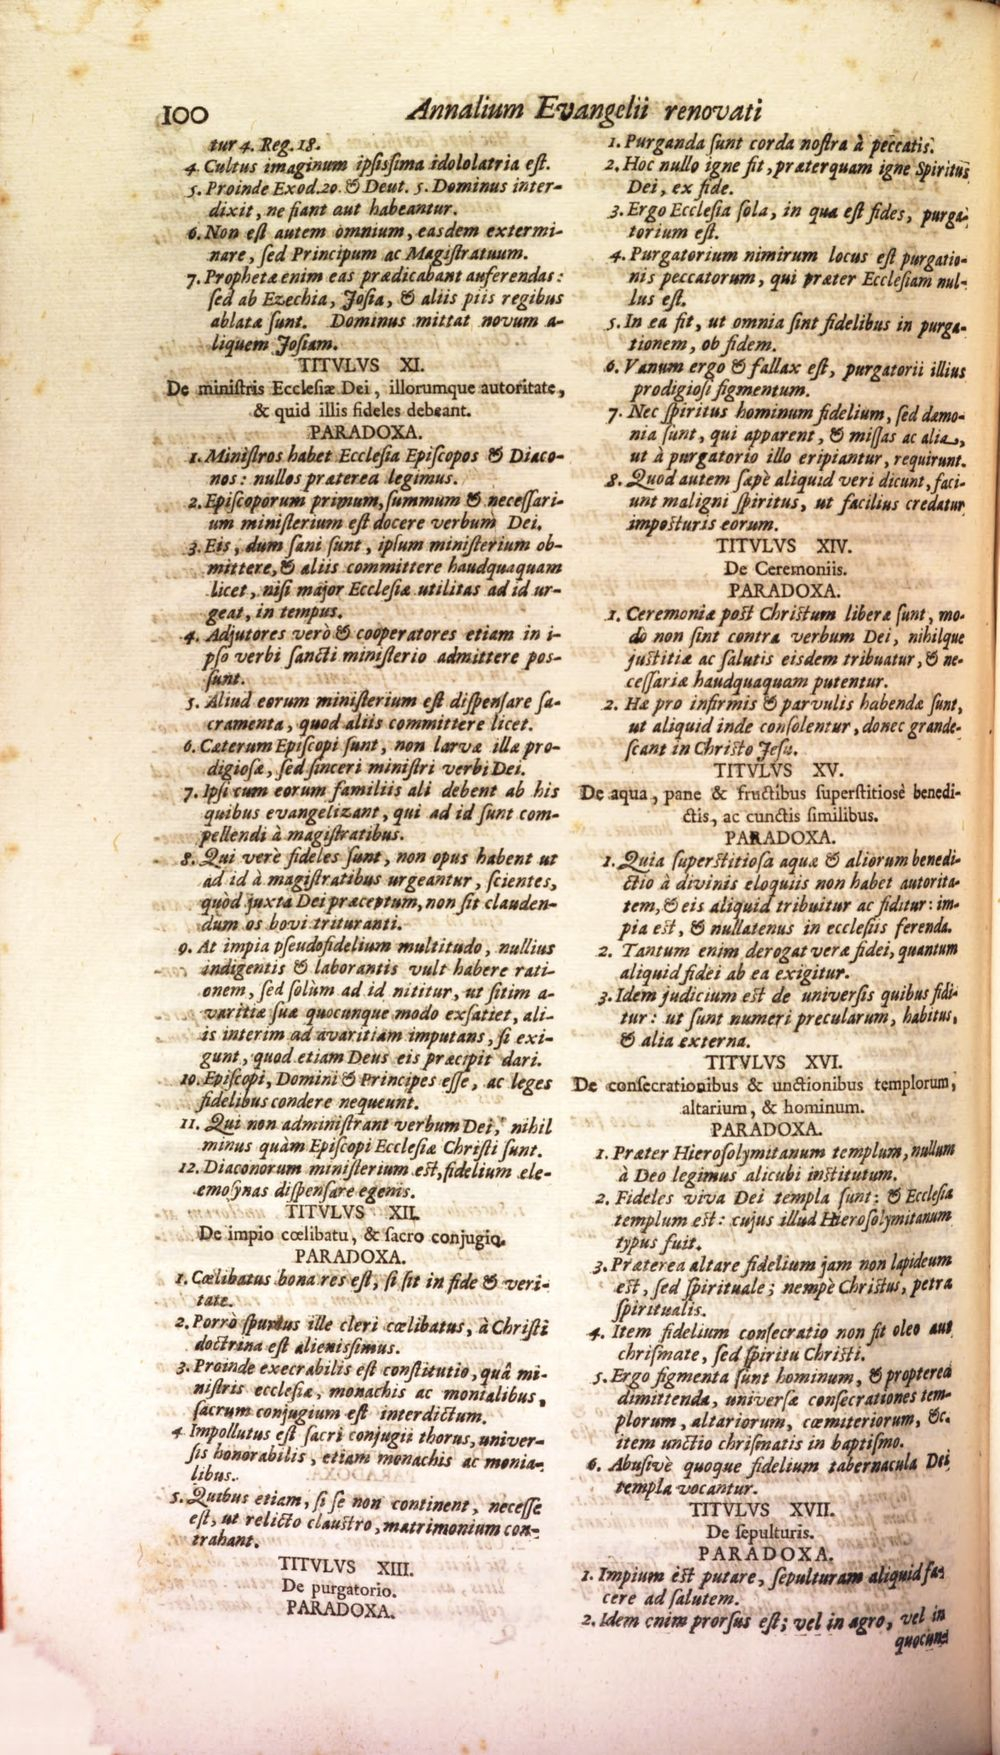 100
Annalium Evangelii renovati
tur 4. Reg. 18.
4. Cultus imaginum ipsissima idololatria est.
5. Proinde Exod. 20. & Deut. 5. Dominus inter-
dixit, ne fiant aut habeantur.
6. Non est autem omnium, easdem extermi-
nare, sed Principum ac Magistratuum.
7. Prophetæ enim eas prædicabant auferendas:
sed ab Ezechia, Josia, & aliis piis regibus
ablatæ sunt. Dominus mittat novum a-
liquem Josiam.
TITVLVS XI.
De ministris Ecclesiæ Dei, illorumque autoritate,
& quid illis fideles debeant.
PARADOXA.
1. Ministros habet Ecclesia Episcopos & Diaco-
nos: nullos præterea legimus.
2. Episcoporum primum, summum & necessari-
um ministerium est docere verbum Dei.
3. Eis, dum sani sunt, ipsum ministerium ob-
mittere, & aliis committere haudquaquam
licet, nisi major Ecclesiæ utilitas ad id ur-
geat, in tempus.
4. Adjutores verò & cooperatores etiam in i-
pso verbi sancti ministerio admittere pos-
sunt.
5. Aliud eorum ministerium est dispensare sa-
cramenta, quod aliis committere licet.
6. Cæterum Episcopi sunt, non larvæ illæ pro-
digiosæ, sed sinceri ministri verbi Dei.
7. Ipsi cum eorum familiis ali debent ab his
quibus evangelizant, qui ad id sunt com-
pellendi à magistratibus.
8. Qui verè fideles sunt, non opus habent ut
ad id à magistratibus urgeantur, scientes,
quòd juxta Dei præceptum, non sit clauden-
dum os bovi trituranti.
9. At impia pseudofidelium multitudo, nullius
indigentis & laborantis vult habere rati-
onem, sed solùm ad id nititur, ut sitim a-
varitiæ suæ quocunque modo exsatiet, ali-
is interim ad avaritiam imputans, si exi-
gunt, quod etiam Deus eis præcipit dari.
10. Episcopi, Domini & Principes esse, ac leges
fidelibus condere nequeunt.
11. Qui non administrant verbum Dei, nihil
minus quàm Episcopi Ecclesiæ Christi sunt.
12. Diaconorum ministerium est, fidelium ele-
emosynas dispensare egenis.
TITVLVS XII.
De impio cœlibatu, & sacro conjugio.
PARADOXA.
1. Cœlibatus bona res est, si sit in fide & veri-
tate.
2. Porrò spurius ille cleri cœlibatus, à Christi
doctrina est alienissimus.
3. Proinde execrabilis est constitutio, quâ mi-
nistris ecclesiæ, monachis ac monialibus,
sacrum conjugium est interdictum.
4. Impollutus est sacri conjugii thorus, univer-
sis honorabilis, etiam monachis ac monia-
libus.
5. Quibus etiam, si se non continent, necesse
est, ut relicto claustro, matrimonium con-
trahant.
TITVLVS XIII.
De purgatorio.
PARADOXA.
1. Purganda sunt corda nostra à peccatis.
2. Hoc nullo igne fit, præterquam igne Spiritus
Dei, ex fide.
3. Ergo Ecclesia sola, in qua est fides, purga-
torium est.
4. Purgatorium nimirum locus est purgatio-
nis peccatorum, qui præter Ecclesiam nul-
lus est.
5. In ea fit, ut omnia sint fidelibus in purga-
tionem, ob fidem.
6. Vanum ergo & fallax est, purgatorii illius
prodigiosi figmentum.
7. Nec spiritus hominum fidelium, sed dæmo-
nia sunt, qui apparent, & missas ac alia,
ut à purgatorio illo eripiantur, requirunt.
8. Quod autem sæpè aliquid veri dicunt, faci-
unt maligni spiritus, ut facilius credatur
imposturis eorum.
TITVLVS XIV.
De Ceremoniis.
PARADOXA.
1. Ceremoniæ post Christum liberæ sunt, mo-
dò non sint contra verbum Dei, nihilque
justitiæ ac salutis eisdem tribuatur, & ne-
cessariæ haudquaquam putentur.
2. Hæ pro infirmis & parvulis habendæ sunt,
ut aliquid inde consolentur, donec grande-
scant in Christo Jesu.
TITVLVS XV.
De aqua, pane & fructibus superstitiosè benedi-
ctis, ac cunctis similibus.
PARADOXA.
1. Quia superstitiosa aquæ & aliorum benedi-
ctio à divinis eloquiis non habet autorita-
tem, & eis aliquid tribuitur ac fiditur: im-
pia est, & nullatenus in ecclesiis ferenda.
2. Tantum enim derogat veræ fidei, quantum
aliquid fidei ab ea exigitur.
3. Idem judicium est de universis quibus fidi-
tur: ut sunt numeri precularum, habitus,
& alia externa.
TITVLVS XVI.
De consecrationibus & unctionibus templorum,
altarium, & hominum.
PARADOXA.
1. Præter Hierosolymitanum templum, nullum
à Deo legimus alicubi institutum.
2. Fideles viva Dei templa sunt: & Ecclesia
templum est: cujus illud Hierosolymitanum
typus fuit.
3. Præterea altare fidelium jam non lapideum
est, sed spirituale; nempè Christus, petra
spiritualis.
4. Item fidelium consecratio non fit oleo aut
chrismate, sed spiritu Christi.
5. Ergo figmenta sunt hominum, & propterea
dimittenda, universæ consecrationes tem-
plorum, altariorum, cœmiteriorum, &c.
item unctio chrismatis in baptismo.
6. Abusivè quoque fidelium tabernacula Dei
templa vocantur.
TITVLVS XVII.
De sepulturis.
PARADOXA.
1. Impium est putare, sepulturam aliquid fa-
cere ad salutem.
2. Idem enim prorsus est; vel in agro, vel in
quocun-